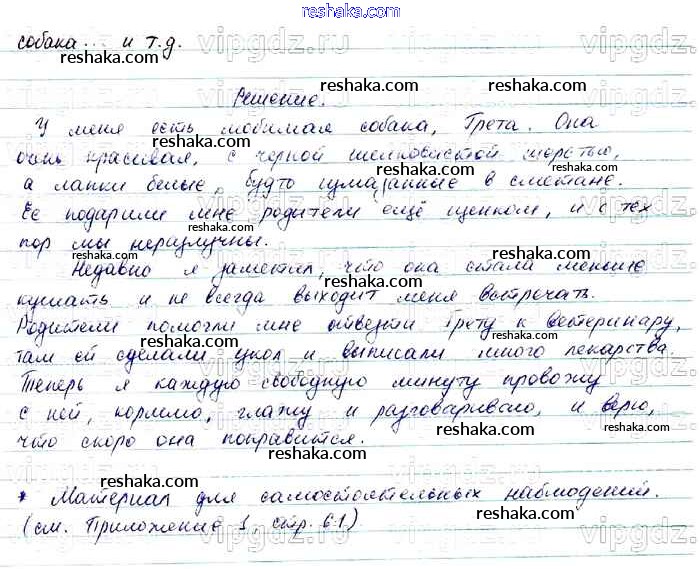 reshaka.com
собака... и т.д.
Решение.
У меня есть любимая собака, Грета. Она
очень красивая, с черной шелковистой шерстью,
а лапки белые, будто измазанные в сметане.
Ее подарили мне родители ещё щенком, и с тех
пор мы неразлучны.
Недавно я заметил, что она стала меньше
кушать и не всегда выходит меня встречать.
Родители помогли мне отвезти Грету к ветеринару,
там ей сделали укол и выписали много лекарства.
Теперь я каждую свободную минуту провожу
с ней, кормлю, глажу и разговариваю, и верю,
что скоро она поправится.
* Материал для самостоятельных наблюдений.
(см. Приложение 1, стр. 61)